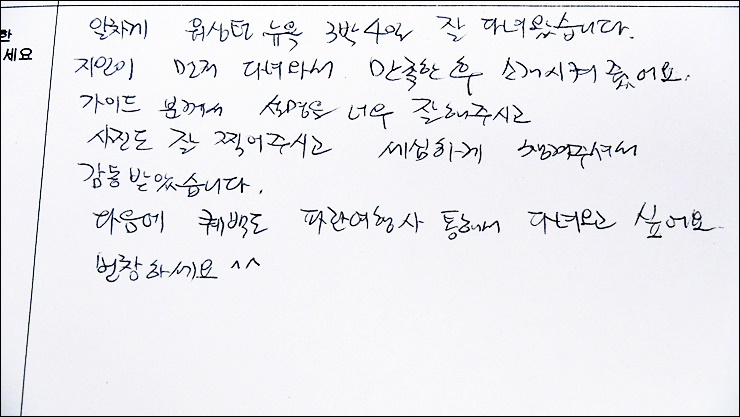 한
세요
알차게 워싱턴 뉴욕 3박4일 잘 다녀왔습니다.
지인이 먼저 다녀와서 만족한 후 소개시켜 줬어요.
가이드 분께서 설명도 너무 잘해주시고
사진도 잘 찍어주시고 세심하게 챙겨주셔서
감동받았습니다.
다음에 퀘백도 파란여행사 통해서 다녀오고 싶어요
번창하세요 ^^